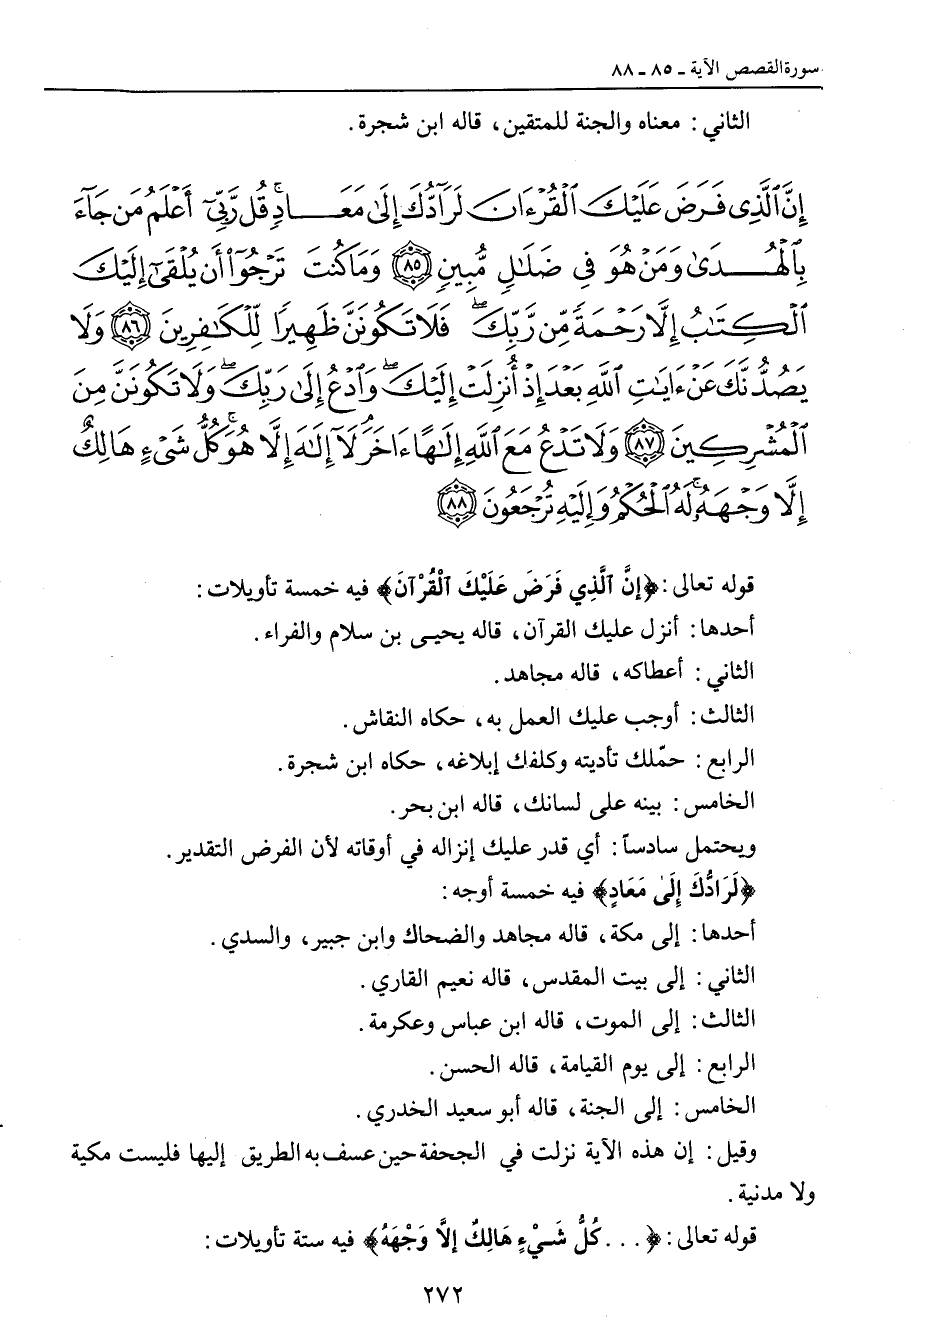 سورة القصص الآية - ٨٥ - ٨٨
الثاني: معناه والجنة للمتقين، قاله ابن شجرة.
إِنَّ ٱلَّذِى فَرَضَ عَلَيْكَ ٱلْقُرْءَانَ لَرَآدُّكَ إِلَىٰ مَعَادٍ ۚ قُل رَّبِّىٓ أَعْلَمُ مَن جَآءَ
بِٱلْهُدَىٰ وَمَنْ هُوَ فِى ضَلَٰلٍ مُّبِينٍ ﴿٨٥﴾ وَمَا كُنتَ تَرْجُوٓا۟ أَن يُلْقَىٰٓ إِلَيْكَ
ٱلْكِتَٰبُ إِلَّا رَحْمَةً مِّن رَّبِّكَ ۖ فَلَا تَكُونَنَّ ظَهِيرًا لِّلْكَٰفِرِينَ ﴿٨٦﴾ وَلَا
يَصُدُّنَّكَ عَنْ ءَايَٰتِ ٱللَّهِ بَعْدَ إِذْ أُنزِلَتْ إِلَيْكَ ۖ وَٱدْعُ إِلَىٰ رَبِّكَ ۖ وَلَا تَكُونَنَّ مِنَ
ٱلْمُشْرِكِينَ ﴿٨٧﴾ وَلَا تَدْعُ مَعَ ٱللَّهِ إِلَٰهًا ءَاخَرَ ۘ لَآ إِلَٰهَ إِلَّا هُوَ ۚ كُلُّ شَىْءٍ هَالِكٌ
إِلَّا وَجْهَهُۥ ۚ لَهُ ٱلْحُكْمُ وَإِلَيْهِ تُرْجَعُونَ ﴿٨٨﴾
قوله تعالى: ﴿إِنَّ ٱلَّذِي فَرَضَ عَلَيْكَ ٱلْقُرْآنَ﴾ فيه خمسة تأويلات:
أحدها: أنزل عليك القرآن، قاله يحيى بن سلام والفراء.
الثاني: أعطاكه، قاله مجاهد.
الثالث: أوجب عليك العمل به، حكاه النقاش.
الرابع: حمّلك تأديته وكلفك إبلاغه، حكاه ابن شجرة.
الخامس: بينه على لسانك، قاله ابن بحر.
ويحتمل سادساً: أي قدر عليك إنزاله في أوقاته لأن الفرض التقدير.
﴿لَرَادُّكَ إِلَىٰ مَعَادٍ﴾ فيه خمسة أوجه:
أحدها: إلى مكة، قاله مجاهد والضحاك وابن جبير، والسدي.
الثاني: إلى بيت المقدس، قاله نعيم القاري.
الثالث: إلى الموت، قاله ابن عباس وعكرمة.
الرابع: إلى يوم القيامة، قاله الحسن.
الخامس: إلى الجنة، قاله أبو سعيد الخدري.
وقيل: إن هذه الآية نزلت في الجحفة حين عسف به الطريق إليها فليست مكية
ولا مدنية.
قوله تعالى: ﴿... كُلُّ شَيْءٍ هَالِكٌ إِلَّا وَجْهَهُ﴾ فيه ستة تأويلات:
٢٧٢